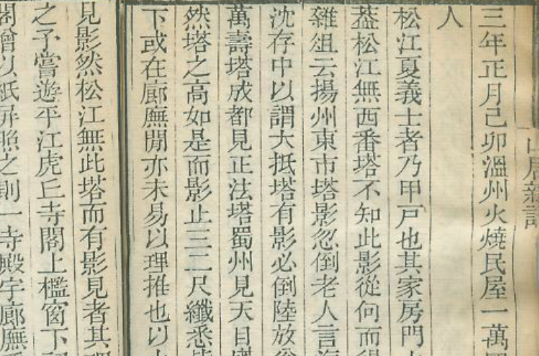 三年正月己卯溫州火燒民屋一萬
人
松江夏義士者乃甲戸也其家房門
葢松江無西番塔不知此影從何而
雜俎云揚州東市塔影忽倒老人言
沈存中以謂大抵塔有影必倒陸放
萬壽塔成都見正法塔蜀州見天目
然塔之高如是而影止三二尺纖悉
下或在廊廡閒亦未易以理推也以
見影然松江無此塔而有影見者其
之予嘗遊平江虎丘寺閣上檻窗下
閣僧以紙屏照之則一寺殿宇廊廡